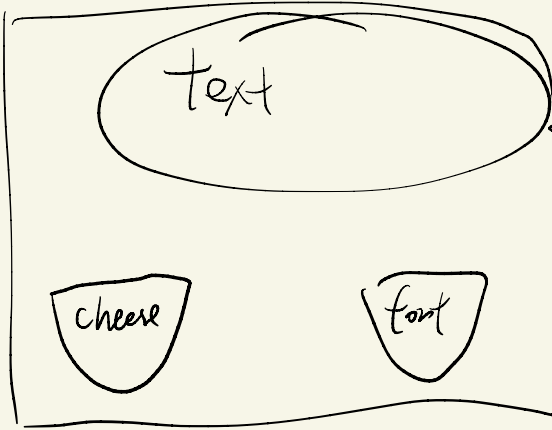 Text
cheese
font